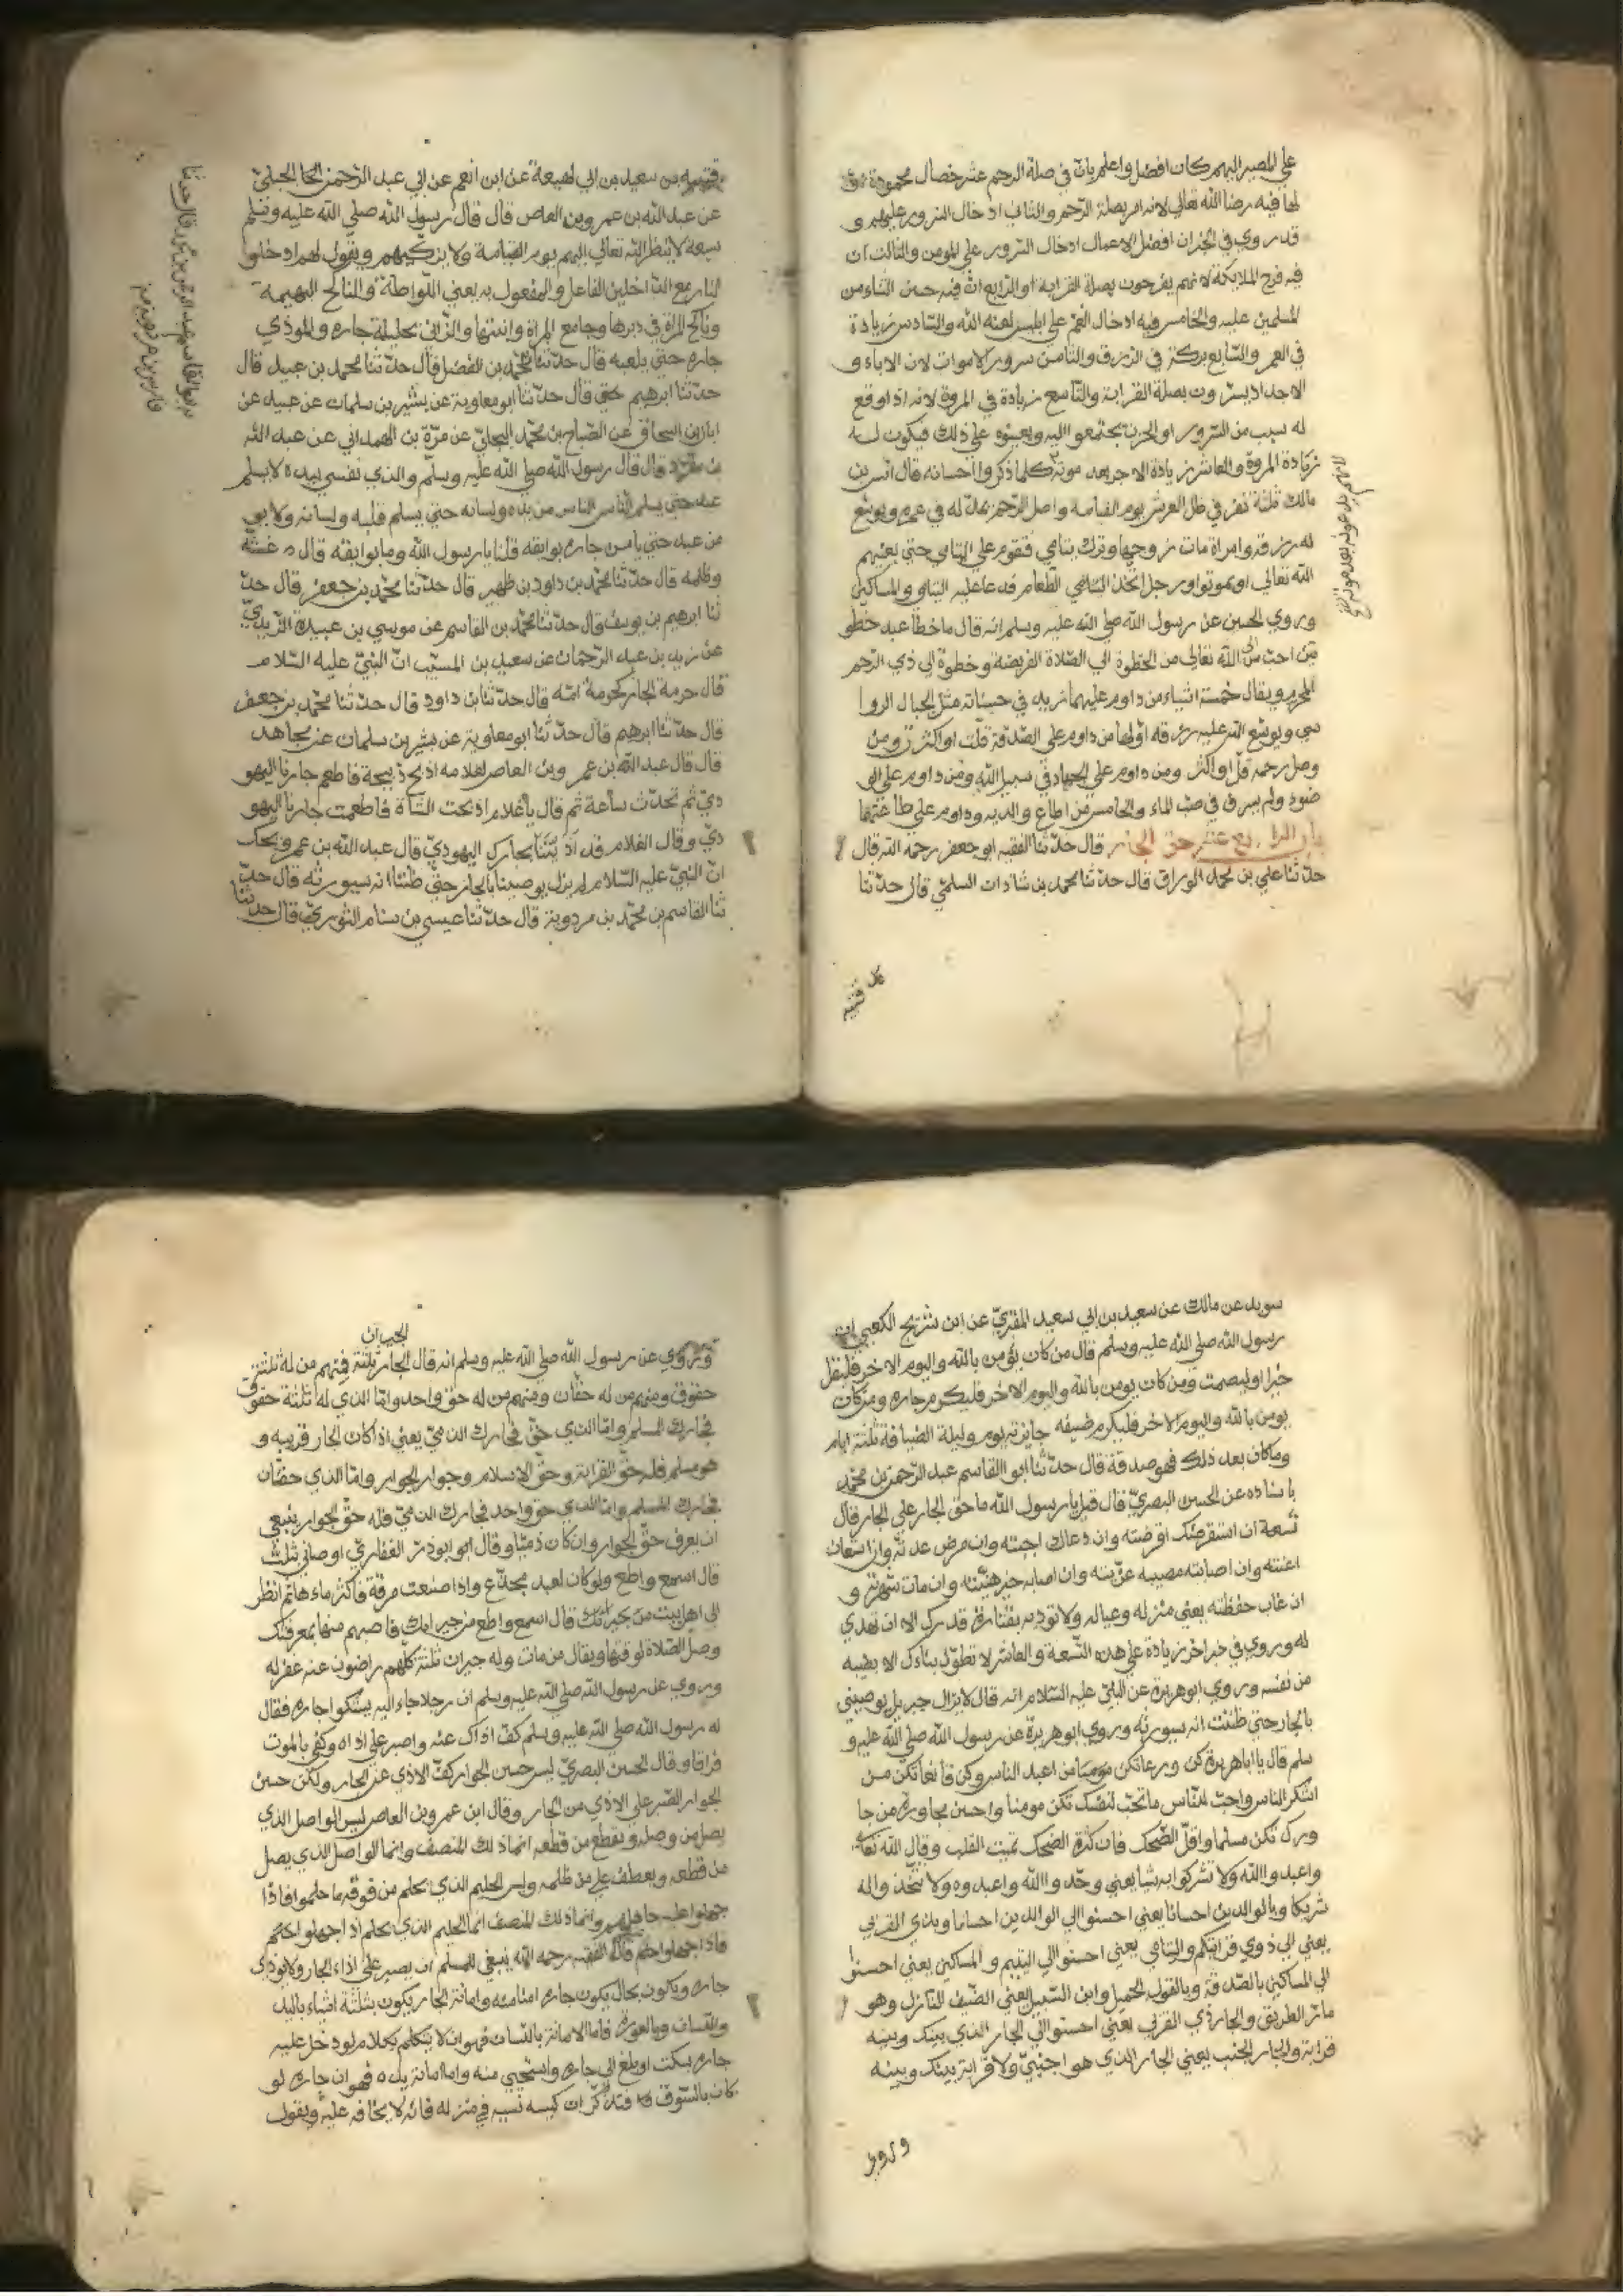 علي المصير اليهم كان افضل واعلم بان في صلة الرحم عشر خصال محمودة
لها فيه رضا الله تعالي لانه امر بصلة الرحم والثاني ادخال السرور عليهم و
قد روي في الخبر ان افضل الاعمال ادخال السرور علي المومن والثالث ان
فيه فرح الملايكة لانهم يفرحون بصلة القرابة والرابع ان فيه حسن الثناء من
المسلمين عليه والخامس فيه ادخال الغم علي ابليس لعنه الله والسادس زيادة
في العمر والسابع بركة في الرزق والثامن سرور الاموات لان الاباء و
الاجداد يسرون بصلة القرابة والتاسع زيادة في المروة لانه اذا وقع
له سبب من السرور او الحزن يجتمعو اليه ويعينوه علي ذلك فيكون له
زيادة المروة والعاشر زيادة الاجر بعد موته كلما ذكروا احسانه قال انس بن
مالك ثلثة نفر في ظل العرش يوم القيامة واصل الرحم يمد له في عمره ويوسع
له رزقه وامراة مات زوجها وترك يتامي فتقوم علي اليتامي حتي يغنيهم
الله تعالي او يموتوا ورجل اتخذ الطعام فدعا عليه اليتامي والمساكين
وروي الحسن عن رسول الله صلي الله عليه وسلم انه قال ما خطا عبد خطو
تين احب الي الله تعالي من الخطوة الي الصلاة الفريضة وخطوة الي ذي الرحم
المحرم ويقال خمسة اشياء من داوم عليها يزيد في حسناته مثل الجبال الروا
سي ويوسع الله عليه رزقه اولها من داوم علي الصدقة قلت او كثرت ومن
وصل رحمه قل او اكثر ومن داوم علي الجهاد في سبيل الله ومن داوم علي الو
ضوء ولم يسرف في صب الماء والخامس من اطاع والديه وداوم علي طاعتهما
باب الرابع عشر حق الجار قال حدثنا الفقيه ابو جعفر رحمه الله قال
حدثنا علي بن محمد الوراق قال حدثنا محمد بن شادان السلمي قال حدثنا
قتيبه
قتيبه بن سعيد بن ابي لهيعة عن ابن انعم عن ابي عبد الرحمن الحبلي
عن عبد الله بن عمر وبن العاص قال قال رسول الله صلي الله عليه وسلم
سبعة لا ينظر الله تعالي اليهم يوم القيامة ولا يزكيهم ويقول لهم ادخلوا
النار مع الداخلين الفاعل والمفعول به يعني اللواطة والناكح البهيمة
وناكح المراة في دبرها وجامع المراة وابنتها والزاني بحليلة جاره والموذي
جاره حتي يلعنه قال حدثنا محمد بن الفضل قال حدثنا محمد بن جعفر قال
حدثنا ابرهيم قال حدثنا ابو معاوية عن بشير بن سلمان عن
ابان بن اسحاق عن الصباح بن محمد البجلي عن مرة بن الهمداني عن عبد الله
بن مسعود قال قال رسول الله صلي الله عليه وسلم والذي نفسي بيده لا يسلم
عبد حتي يسلم الناس من يده ولسانه حتي يسلم قلبه ولسانه ولا يو
من عبد حتي يامن جاره بوايقه قلنا يا رسول الله وما بوايقه قال غشه
وظلمه قال حدثنا محمد بن داود بن ظهير قال حدثنا محمد بن جعفر قال حد
ثنا ابرهيم بن يوسف قال حدثنا محمد بن القاسم عن موسي بن عبيدة الزبيدي
عن زيد بن عبد الرحمان عن سعيد بن المسيب ان النبي عليه السلام
قال حرمة الجار كحرمة امه قال حدثنا بن داود قال حدثنا محمد بن جعفر
قال حدثنا ابرهيم قال حدثنا ابو معاوية عن بشير بن سلمان عن مجاهد
قال قال عبد الله بن عمر وبن العاص لغلامه اذبح ذبيحة فاطعم جارنا اليهو
دي ثم تحدث ساعة ثم قال يا غلام اذبحت الشاة فاطعمت جارنا اليهو
دي وقال الغلام قد اذيتنا بجارك اليهودي قال عبد الله بن عمر ويحك
ان النبي عليه السلام لم يزل يوصينا بالجار حتي ظننا انه سيورثه قال حد
ثنا القاسم بن محمد بن مردوية قال حدثنا عيسي بن الثوري قال حدثنا
سويد عن مالك عن سعيد بن ابي سعيد المقبري عن ابن شريح الكعبي ان
رسول الله صلي الله عليه وسلم قال من كان يؤمن بالله واليوم الاخر فليقل
خيرا او ليصمت ومن كان يومن بالله واليوم الاخر فليكرم جاره ومن كان
يومن بالله واليوم الاخر فليكرم ضيفه جايزته يوم وليلة الضيافة ثلثة ايام
وما كان بعد ذلك فهو صدقة قال حدثنا ابو القاسم عبد الرحمن بن محمد
باسناده عن الحسن البصري قال قيل يا رسول الله ما حق الجار علي الجار قال
تسعة ان استقرضك اقرضته وان دعاك اجبته وان مرض عدته وان استعان
اعنته وان اصابته مصيبه عزيته وان اصابه خير هنيته وان مات شهدته و
ان غاب حفظته يعني منزله وعياله ولا توذيه بقتار قدرك الا ان تهدي
له وروي في خبر اخر زيادة علي هذه التسعة والعاشر لا تطول بناءك الا بطيبه
من نفسه وروي ابو هريرة عن النبي عليه السلام انه قال لا يزال جبريل يوصيني
بالجار حتي ظننت انه سيورثه وروي ابو هريرة عن رسول الله صلي الله عليه و
سلم قال يا اباهريرة كن ورعا تكن من اعبد الناس وكن قانعا تكن من
اشكر الناس واحب للناس ما تحب لنفسك تكن مومنا واحسن مجاورة من جا
ورك تكن مسلما واقل الضحك فان كثرة الضحك تميت القلب وقال الله تعا
واعبدوا الله ولا تشركوا به شيا يعني وحدوا الله واعبدوه ولا تتخذ واله
شريكا وبالوالدين احسانا يعني احسنوا الي الوالدين احسانا وبذي القربي
يعني الي ذوي قرابتكم واليتامي يعني احسنوا الي اليتيم والمساكين يعني احسنوا
الي المساكين بالصدقة وبالقول الجميل وابن السبيل يعني الضيف النازل وهو
مار الطريق والجار ذي القربي يعني احسنوا الي الجار الذي بينك وبينه
قرابة والجار الجنب يعني الجار الذي هو اجنبي ولا قرابة بينك وبينه
وروي
وروي عن رسول الله صلي الله عليه وسلم انه قال الجيران ثلثة فمنهم من له ثلثة
حقوق ومنهم من له حقان ومنهم من له حق واحد واما الذي له ثلثة حقوق
فجارك المسلم يعني اذا كان الجار قريبه و
هو مسلم فله حق القرابة وحق الاسلام وجوار الجوار واما الذي حقان
فجارك المسلم واما الذي حق واحد فجارك الذمي فله حق الجوار ينبغي
ان يعرف حق الجوار وان كان ذميا وقال ابو ذر الغفاري اوصاني بثلث
قال اسمع واطع ولو كان لعبد مجدع واذا صنعت مرقة فاكثر ماءها ثم انظر
الي اهل بيت من جيرانك فاصبهم منها بمعرفتك
وصل الصلاة لوقتها ويقال من مات وله جيران ثلثة كلهم راضون عنه غفر له
وروي عن رسول الله صلي الله عليه وسلم ان رجلا جاء اليه يشكوا جاره فقال
له رسول الله صلي الله عليه وسلم كف اذاك عنه واصبر علي اذاه وكفي بالموت
فراقا وقال الحسن البصري ليس حسن الجوار كف الاذي عن الجار ولكن حسن
الجوار الصبر علي الاذي من الجار وقال ابن عمر وبن العاص ليس الواصل الذي
يصل من وصله ويقطع من قطعه انما ذلك المنصف وانما الواصل الذي يصل
من قطعه ويعطف علي من ظلمه وليس الحليم الذي يحلم من قومه ما حلموا فاذا
جهلوا عليه جاهلهم وانما ذلك المنصف انما الحليم الذي يحلم اذا
فاذا جهلوا حلم قال الفقيه رحمه الله ينبغي للمسلم ان يصبر علي اذاء الجار ولا يوذي
جاره ويكون بحال يكون جاره امنا منه وامانة الجار يكون بثلثة اشياء باليد
واللسان وبالعورة فاما الامانة باللسان فهو ان لا يتكلم بكلام لو دخل عليه
جاره سكت او بلغ الي جاره واستحيي منه واما امانة يده فهو ان جاره لو
كان بالسوق فتذكر ان كيسه نسيه في منزله فانه لا يخافه عليه ويقول